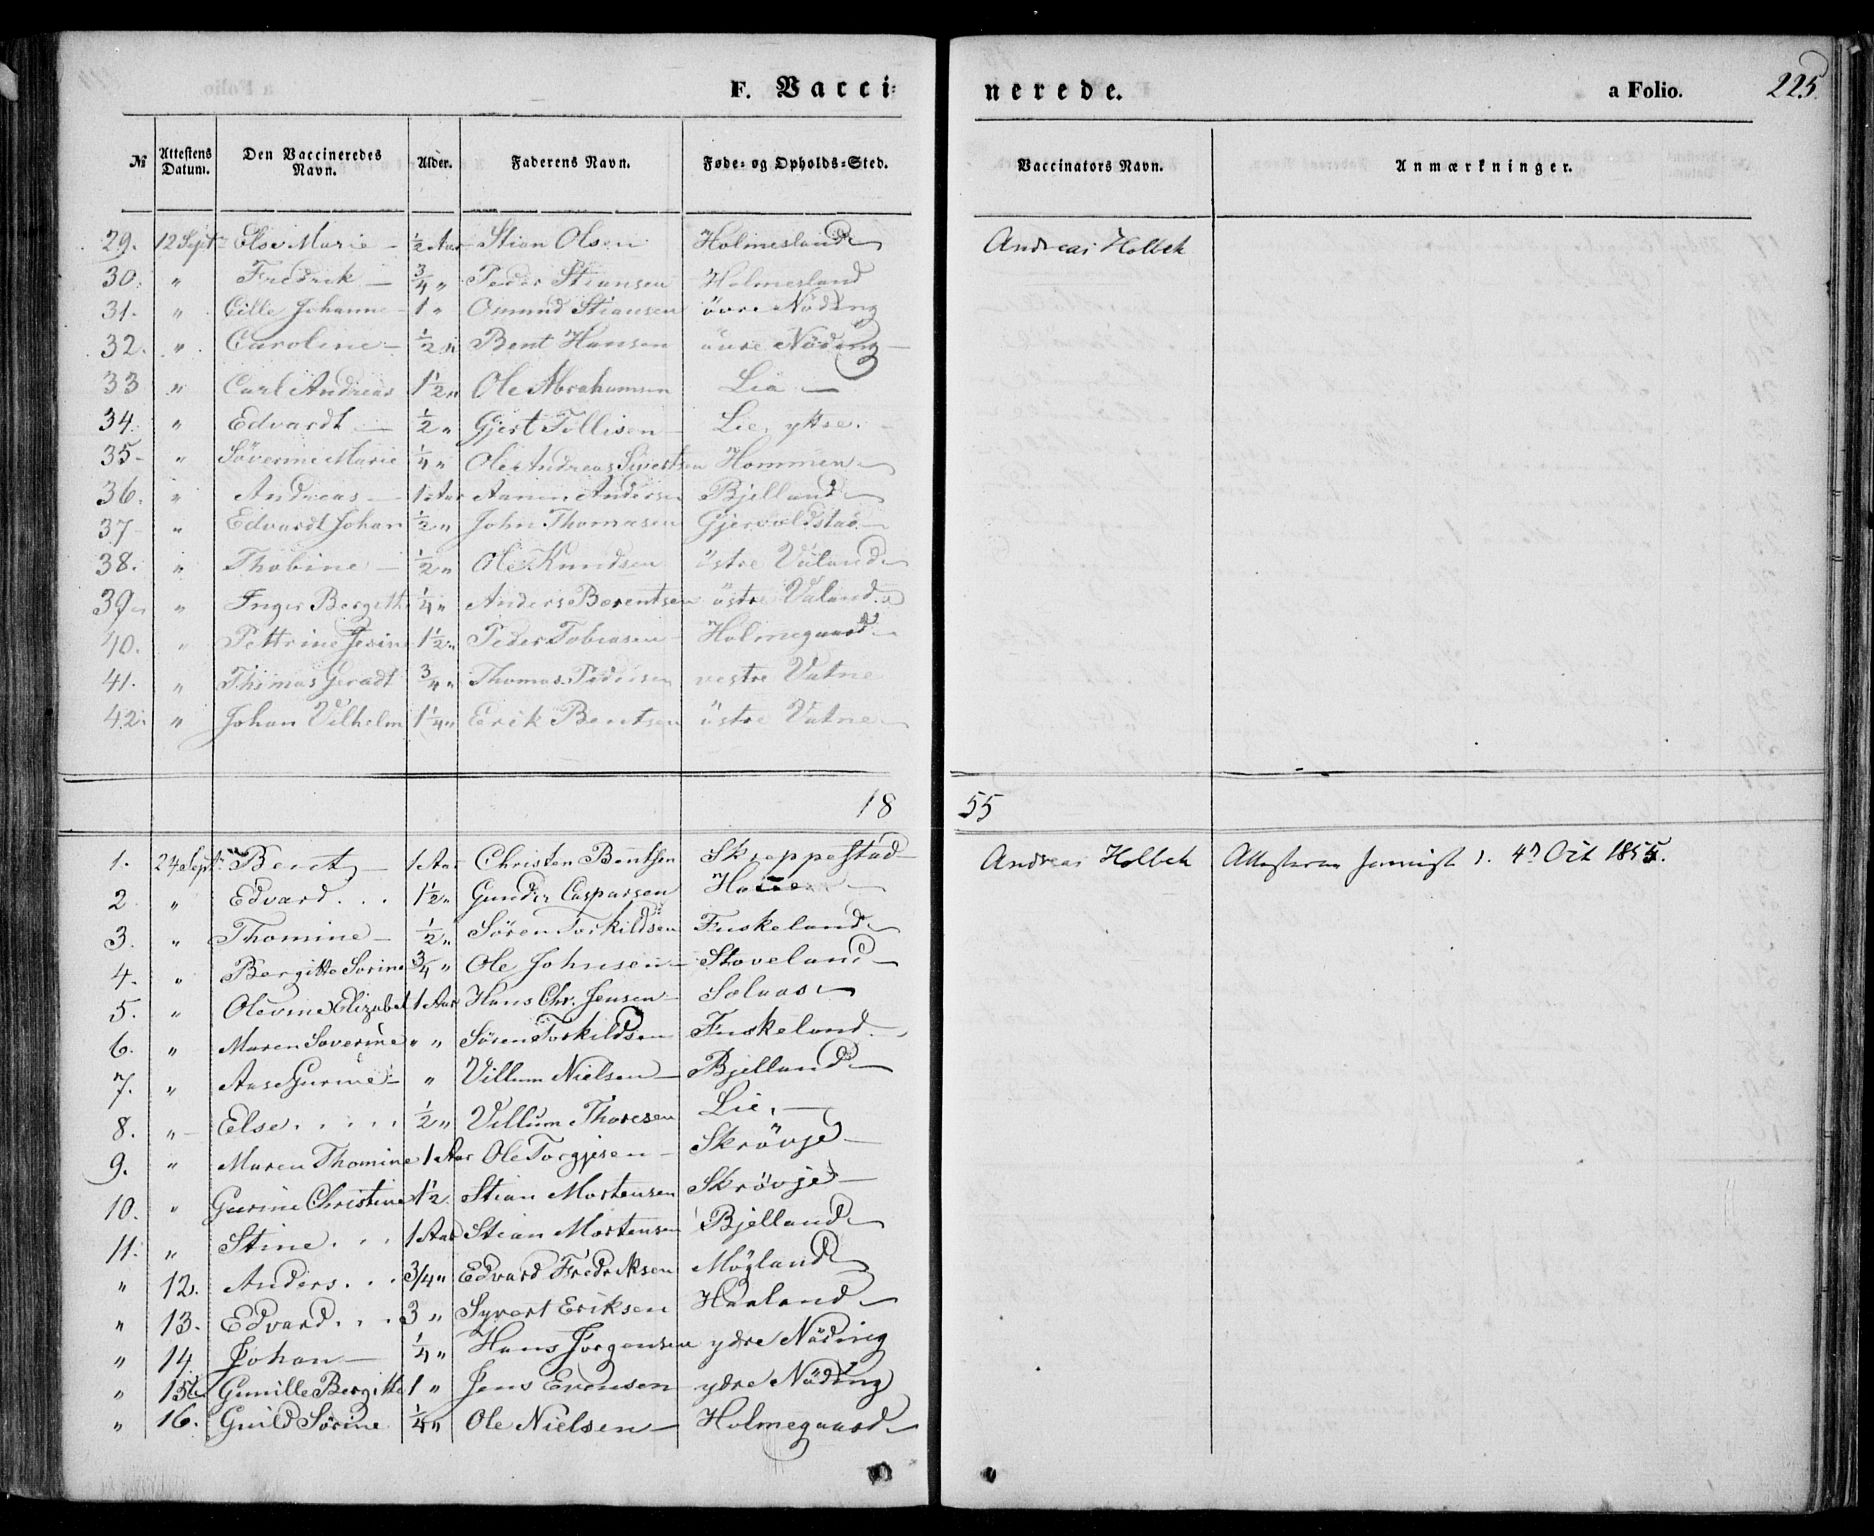 F. Vacci- nerede. a Folio. 225.
№ Attestens Datum. Den Vaccineredes Navn. Alder. Faderens Navn. Føde- og Opholds-Sted. Vaccinators Navn. Anmærkninger.
29. 12 Sept Else Marie - ½ Aar Stian Olsen Holmesland Andreas Holbek
30. " Fredrik - ¾ " Peder Stiansen Holmesland
31. " Cille Johanne - 1 " Osmund Stiansen övre Nöding
32. " Caroline - ½ " Bent Hansen övre Nöding
33 " Carl Andreas 1½ " Ole Abrahamsen Lia -
34. " Edvardt - ½ " Gjert Tellisen Lie, yttre.
35 - " Säverine Marie ¼ " Ole Andreas Sivertsen Hommen
36. " Andreas - 1 Aar Aanen Andersen Bjelland
37 - " Edvardt Johan ½ " John Thomasen
38. " Thobine - ½ " Ole Knudsen östre Valand
39. " Inger Bergithe ¼ " Anders Berentsen östre Valand
40. " Pettrine 1½ " Peder Tobiasen Holmegaard
41. " Thomas Geradt ¾ " Thomas Pedersen vestre Vatne
42. " Johan Vilhelm 1¼ " Eerik Bentsen östre Vatne
18 55
1. 24 Sept. Berit - 1 Aar Christen Bentsen Skeppestad Andreas Holbek 4d Oct 1855.
2 " Edvard . . . 1½ " Gunder Casparsen
3. " Thomine - ½ " Sören Torkildsen Fuskeland
4. " Bergitte Sorine ¾ " Ole Johnsen - Stoveland
5. " Olevine Elizabet 1 Aar Hans Chr. Jensen - Solaas
6. " Maren Soverine " " Sören Torkildsen Fuskeland
7. " Aase Gurine - " Villum Nielsen - Bjelland
8. " - Else . . . . . ½ " Villum Thoresen Lie, -
9. " Maren Thomine 1 Aar Ole Torgjesen - Skrövje -
10. " Gurine Christine 1½ Stian Mortensen Skrövje -
11. " Stine . . . 1 Aar Stian Mortensen Bjelland
" 12. Anders . . . 3/4 " Edvard Fredriksen Mögland
" 13. Edvard . . . 3 " Syvert Eriksen Haaland
" 14. Johan - ¼ " Hans Jörgensen ydre Nöding
" 15. Gunille Bergitte 1 " Jens Evensen - ydre Nöding
" 16. Gunild Sörine ¼ " Ole Nielsen - Holmegaard